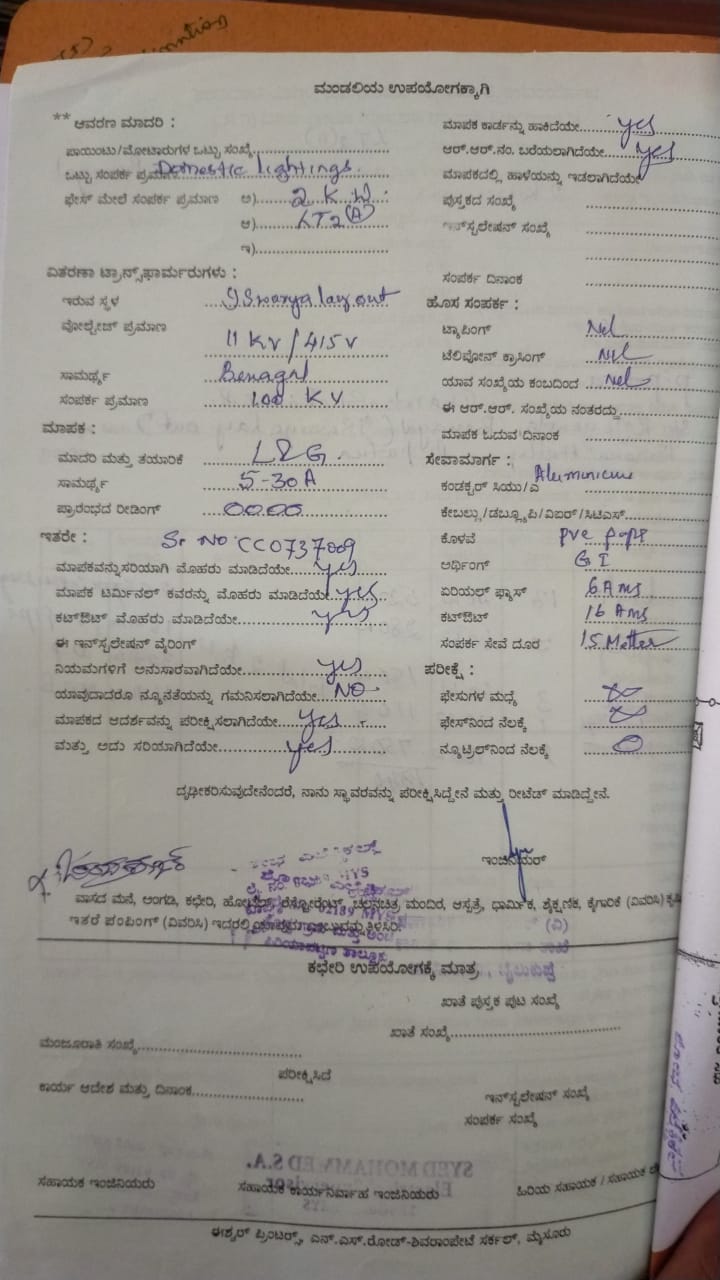 ಮಂಡಲಿಯ ಉಪಯೋಗಕ್ಕಾಗಿ
** ಆವರಣ ಮಾದರಿ :
ಪಾಯಿಂಟು/ಮೋಟಾರುಗಳ ಒಟ್ಟು ಸಂಖ್ಯೆ
ಒಟ್ಟು ಸಂಪರ್ಕ ಪ್ರಮಾಣ Domestic lightings
ಫೇಸ್ ಮೇಲೆ ಸಂಪರ್ಕ ಪ್ರಮಾಣ ಅ) 2 K W
ಆ) LT2 (A)
ಇ)
ವಿತರಣಾ ಟ್ರಾನ್ಸ್‌ಫಾರ್ಮರುಗಳು :
ಇರುವ ಸ್ಥಳ ISwarya layout
ವೋಲ್ಟೇಜ್ ಪ್ರಮಾಣ 11 KV / 415 V
ಸಾಮರ್ಥ್ಯ
ಸಂಪರ್ಕ ಪ್ರಮಾಣ 100 KV
ಮಾಪಕ :
ಮಾದರಿ ಮತ್ತು ತಯಾರಿಕೆ L&G
ಸಾಮರ್ಥ್ಯ 5-30A
ಪ್ರಾರಂಭದ ರೀಡಿಂಗ್ 0000
ಇತರೇ : Sr No CC0737009
ಮಾಪಕವನ್ನು ಸರಿಯಾಗಿ ಮೊಹರು ಮಾಡಿದೆಯೇ yes
ಮಾಪಕ ಟರ್ಮಿನಲ್ ಕವರನ್ನು ಮೊಹರು ಮಾಡಿದೆಯೇ yes
ಕಟ್‌ಔಟ್ ಮೊಹರು ಮಾಡಿದೆಯೇ yes
ಈ ಇನ್‌ಸ್ಟಲೇಷನ್ ವೈರಿಂಗ್
ನಿಯಮಗಳಿಗೆ ಅನುಸಾರವಾಗಿದೆಯೇ yes
ಯಾವುದಾದರೂ ನ್ಯೂನತೆಯನ್ನು ಗಮನಿಸಲಾಗಿದೆಯೇ NO
ಮಾಪಕದ ಆದರ್ಶವನ್ನು ಪರೀಕ್ಷಿಸಲಾಗಿದೆಯೇ yes
ಮತ್ತು ಅದು ಸರಿಯಾಗಿದೆಯೇ yes
ಮಾಪಕ ಕಾರ್ಡನ್ನು ಹಾಕಿದೆಯೇ yes
ಆರ್.ಆರ್.ನಂ. ಬರೆಯಲಾಗಿದೆಯೇ yes
ಮಾಪಕದಲ್ಲಿ ಹಾಳೆಯನ್ನು ಇಡಲಾಗಿದೆಯೇ
ಪುಸ್ತಕದ ಸಂಖ್ಯೆ
ಇನ್‌ಸ್ಟಲೇಷನ್ ಸಂಖ್ಯೆ
ಸಂಪರ್ಕ ದಿನಾಂಕ
ಹೊಸ ಸಂಪರ್ಕ :
ಟ್ಯಾಪಿಂಗ್ Nel
ಟೆಲಿಫೋನ್ ಕ್ರಾಸಿಂಗ್ Nel
ಯಾವ ಸಂಖ್ಯೆಯ ಕಂಬದಿಂದ Nel
ಈ ಆರ್.ಆರ್. ಸಂಖ್ಯೆಯ ನಂತರದ್ದು
ಮಾಪಕ ಓದುವ ದಿನಾಂಕ
ಸೇವಾಮಾರ್ಗ :
ಕಂಡಕ್ಟರ್ ಸಿಯು/ಎ Aluminium
ಕೇಬಲ್ಲು/ಡಬ್ಲ್ಯೂಪಿ/ವಿಐಆರ್/ಸಿಟಿಎಸ್
ಕೊಳವೆ PVC pope
ಅರ್ಥಿಂಗ್ G I
ಏರಿಯಲ್ ಫ್ಯೂಸ್ 6 Ams
ಕಟ್‌ಔಟ್ 16 Ams
ಸಂಪರ್ಕ ಸೇವೆ ದೂರ 15 Metter
ಪರೀಕ್ಷೆ :
ಫೇಸುಗಳ ಮಧ್ಯೆ ∞
ಫೇಸ್‌ನಿಂದ ನೆಲಕ್ಕೆ ∞
ನ್ಯೂಟ್ರಲ್‌ನಿಂದ ನೆಲಕ್ಕೆ 0
ದೃಢೀಕರಿಸುವುದೇನೆಂದರೆ, ನಾನು ಸ್ಥಾವರವನ್ನು ಪರೀಕ್ಷಿಸಿದ್ದೇನೆ ಮತ್ತು ರೀಟೆಡ್ ಮಾಡಿದ್ದೇನೆ.
ಇಂಜಿನಿಯರ್
ವಾಸದ ಮನೆ, ಅಂಗಡಿ, ಕಛೇರಿ, ಹೋಟೆಲ್, ರೆಸ್ಟೋರೆಂಟ್, ಚಲನಚಿತ್ರ ಮಂದಿರ, ಆಸ್ಪತ್ರೆ, ಧಾರ್ಮಿಕ, ಶೈಕ್ಷಣಿಕ, ಕೈಗಾರಿಕೆ (ವಿವರಿಸಿ)
ಇತರೆ ಪಂಪಿಂಗ್ (ವಿವರಿಸಿ) ಇದರಲ್ಲಿ
ಕಛೇರಿ ಉಪಯೋಗಕ್ಕೆ ಮಾತ್ರ
ಖಾತೆ ಪುಸ್ತಕ ಪುಟ ಸಂಖ್ಯೆ
ಖಾತೆ ಸಂಖ್ಯೆ
ಮಂಜೂರಾತಿ ಸಂಖ್ಯೆ
ಪರೀಕ್ಷಿಸಿದೆ
ಕಾರ್ಯ ಆದೇಶ ಮತ್ತು ದಿನಾಂಕ
ಇನ್‌ಸ್ಟಲೇಷನ್ ಸಂಖ್ಯೆ
ಸಂಪರ್ಕ ಸಂಖ್ಯೆ
ಸಹಾಯಕ ಇಂಜಿನಿಯರು ಸಹಾಯಕ ಕಾರ್ಯನಿರ್ವಾಹ ಇಂಜಿನಿಯರು ಹಿರಿಯ ಸಹಾಯಕ / ಸಹಾಯಕ
ಈಶ್ವರ್ ಪ್ರಿಂಟರ್ಸ್, ಎನ್.ಎಸ್.ರೋಡ್-ಶಿವರಾಂಪೇಟೆ ಸರ್ಕಲ್, ಮೈಸೂರು